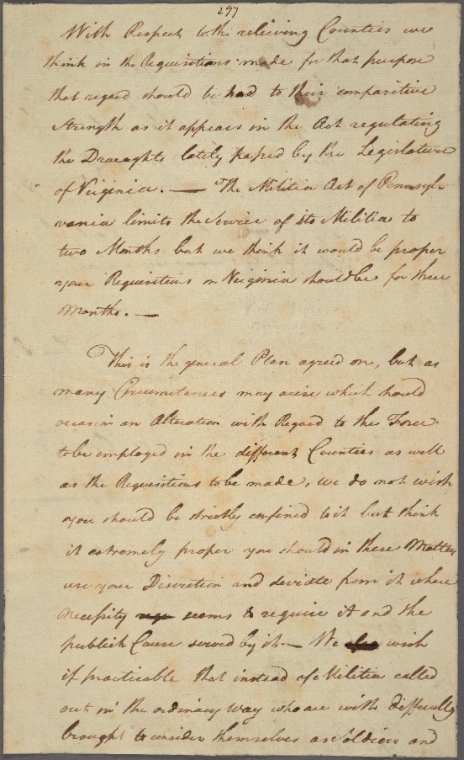 297
With Respect to the relieving Counties we
think in the Requisitions made for that purpose
that regard should be had to their comparitive
Strength as it appears in the Act regulating
the Draughts lately passed by the Legislature
of Virginia. — The Militia Act of Pennsyl-
vania limits the Service of its Militia to
two Months but we think it would be proper
your Requisitions on Virginia should be for three
Months. —
This is the general Plan agreed one, but as
many Circumstances may arise which should
occasion an Alteration with Regard to the Force
to be employed in the different Counties as well
as the Requisitions to be made, we do not wish
you should be strictly confined to it but think
it extremely proper you should in these Matters
use your Discretion and deviate from it where
Necessity seems to require it and the
publick Cause served by it — We wish
if practicable that instead of Militia called
out in the ordinary way who are with difficulty
brought to consider themselves as Soldiers and